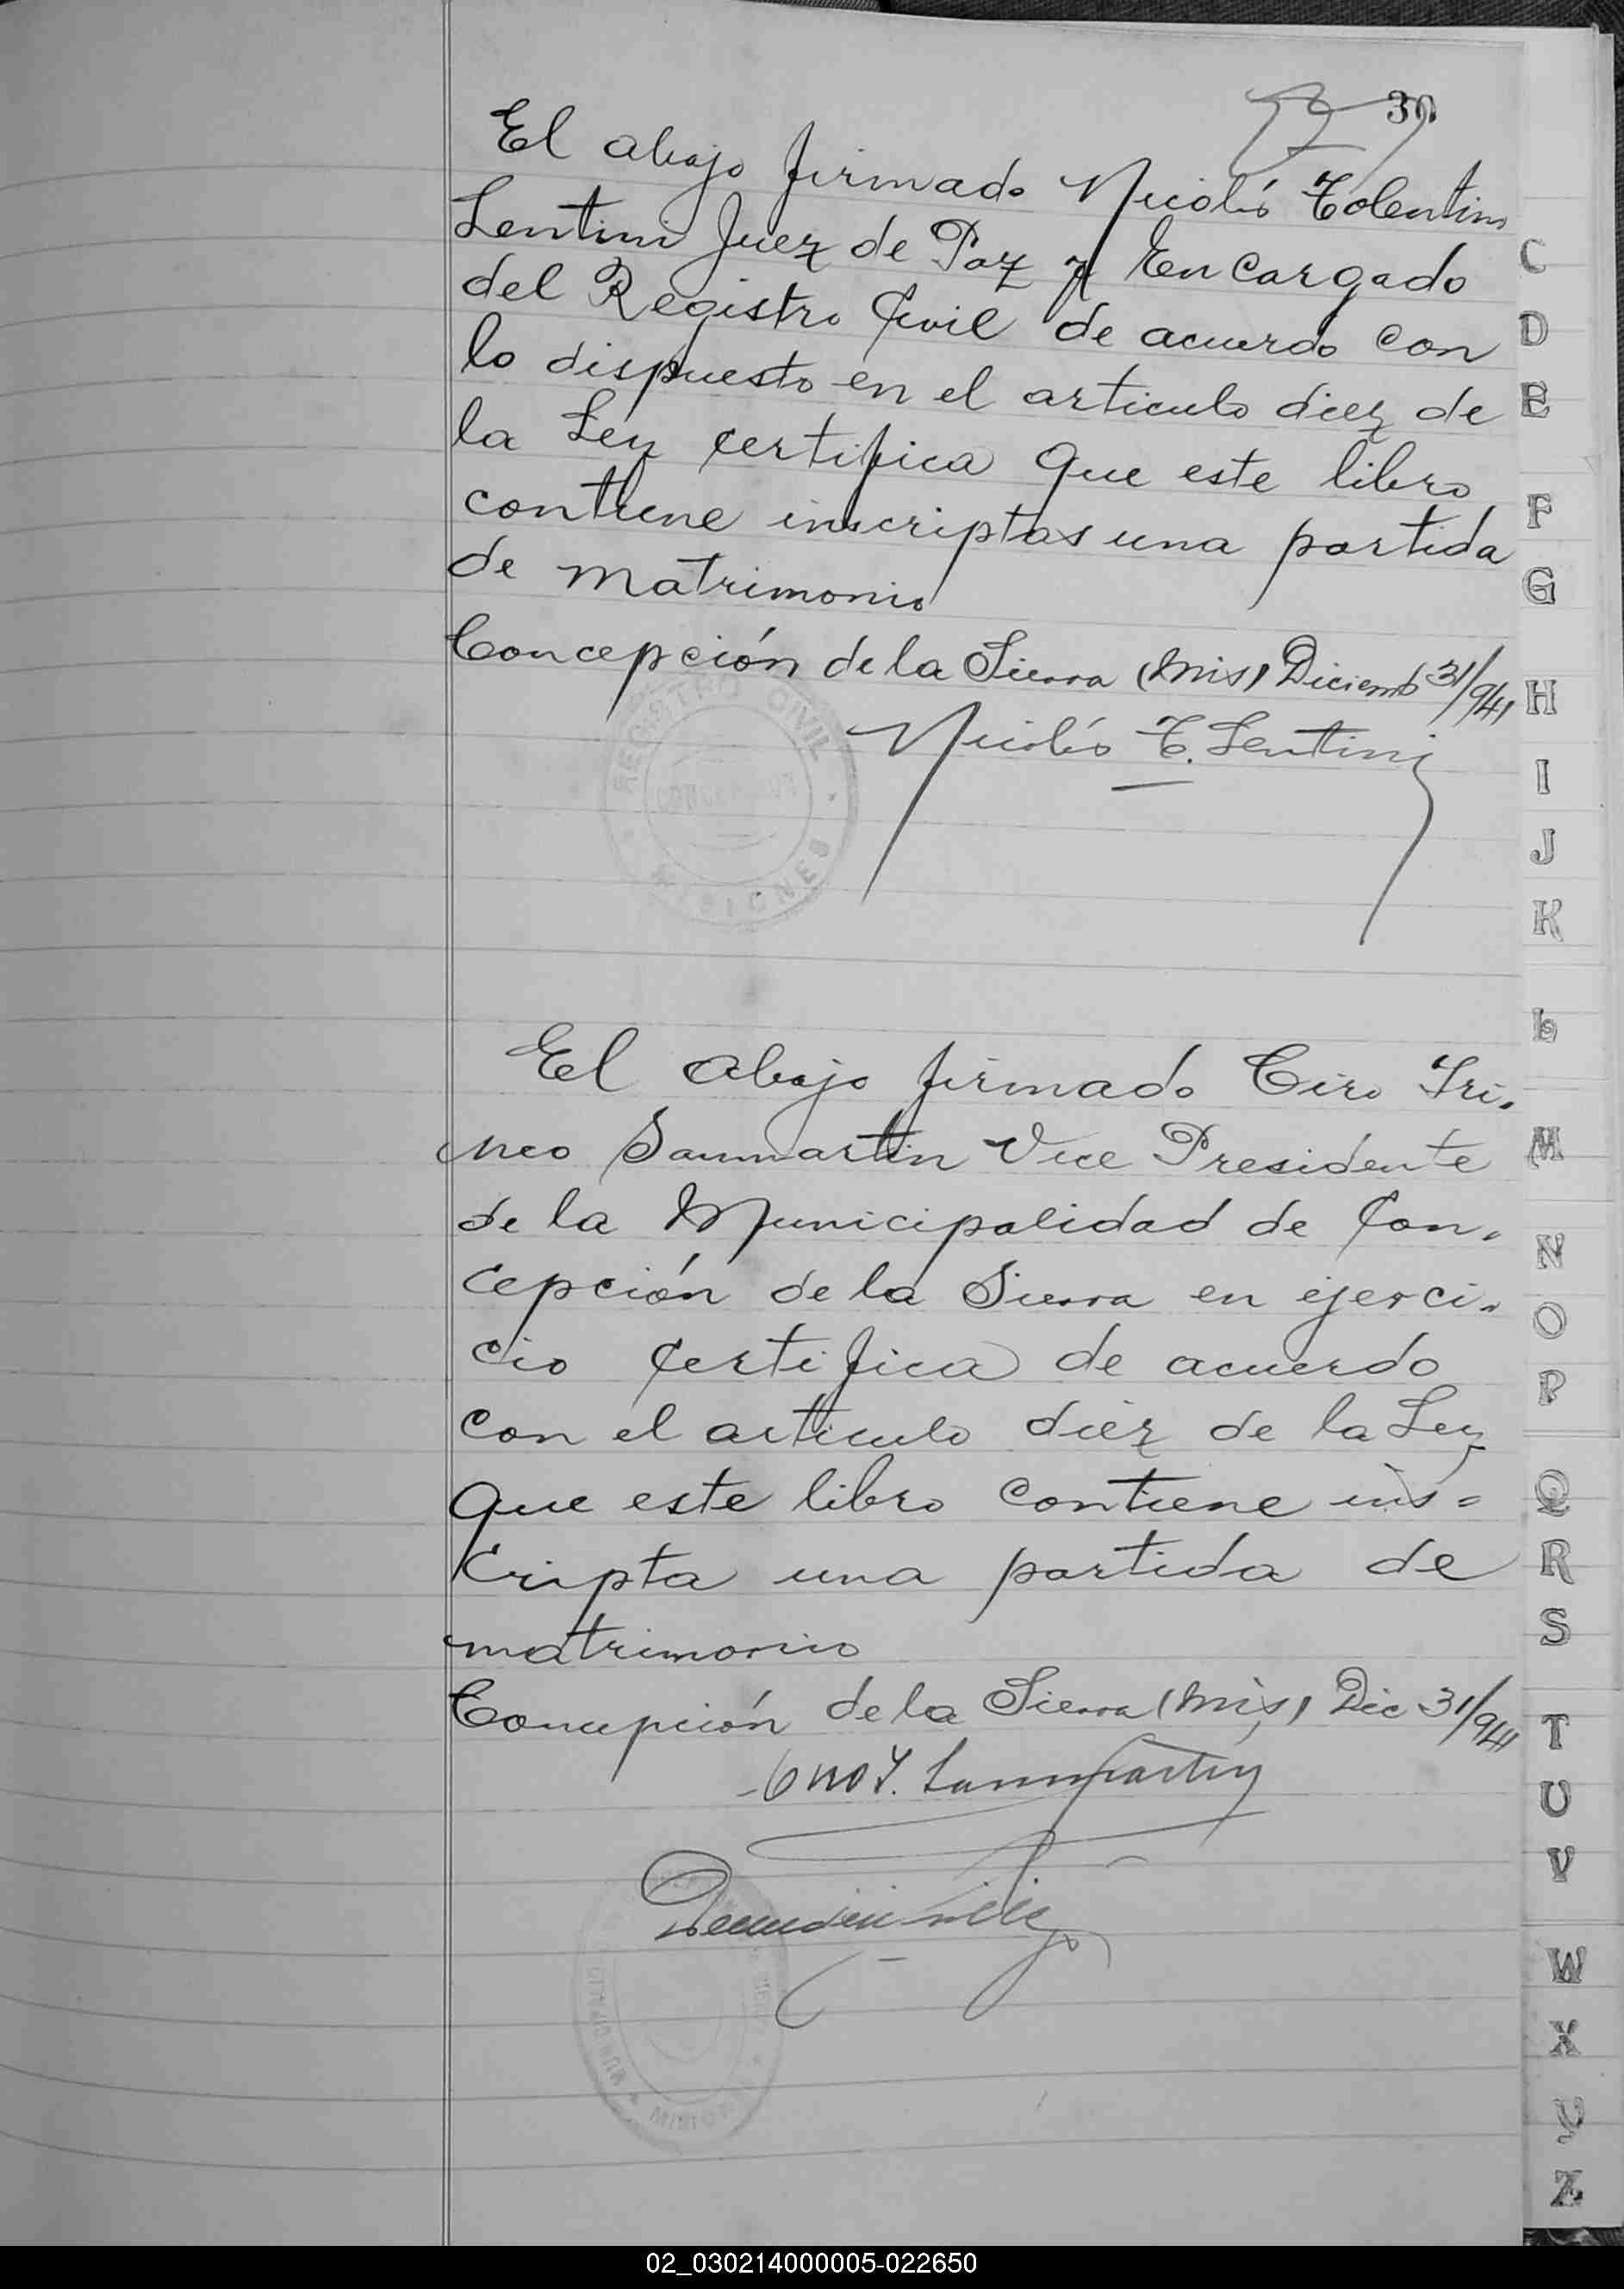 30
El abajo firmado Nicolás Tolentino
Lentini Juez de Paz y Encargado
del Registro Civil de acuerdo con
lo dispuesto en el articulo diez de
la Ley certifica que este libro
contiene inscriptas una partida
de matrimonio
Concepción de la Sierra (Mis) Diciemb 31/941
REGISTRO CIVIL
CONCEPCION
MISIONES
Nicolás T. Lentini
El abajo firmado Ciro Iri-
neo Sanmartin Vice Presidente
de la Municipalidad de Con-
cepción de la Sierra en ejerci-
cio certifica de acuerdo
con el articulo diez de la Ley
que este libro contiene ins=
cripta una partida de
matrimonio
Concepción de la Sierra (Mis) Dic 31/941
Ciro I. Sanmartin
MISIONES
C
D
E
F
G
H
I
J
K
L
M
N
O
P
Q
R
S
T
U
V
W
X
Y
Z
02_030214000005-022650